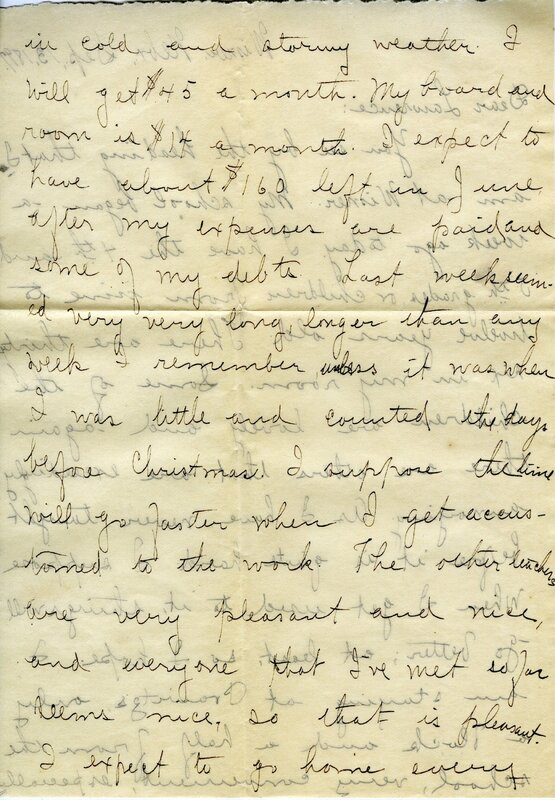 in cold and stormy weather. I
will get $45 a month. My board and
room is $14 a month. I expect to
have about $160 left in June
after my expenses are paid and
some of my debts. Last week seem-
ed very very long, longer than any
week I remember unless it was when
I was little and counted the days
before Christmas. I suppose the time
will go faster when I get accus-
tomed to the work. The other teachers
are very pleasant and nice,
and everyone that I've met so far
seems nice, so that is pleasant.
I expect to go home every